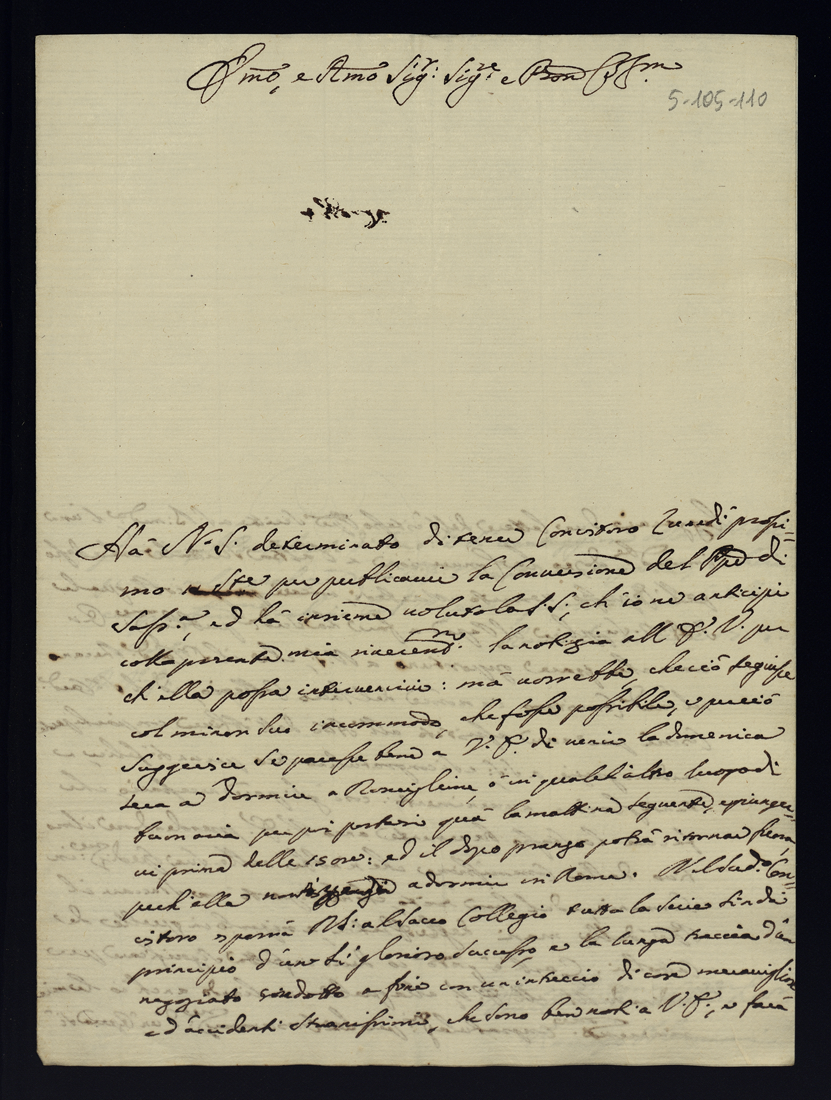 Emo, e Rmo Sigr: Sigre e Pron Cssm.
5-105-110
Hà N. S. determinato di tener Concistoro Lunedì prossi=
mo per publicarvi la Conversione del di
Sassa, ed hà insieme voluto la S. S., ch'io ne anticipi
colla presente mia la notizia all' E. V. per
ch'ella possa intervenirvi: mà vorrebbe, che ciò seguisse
col minor suo incommodo, che fosse possibile, e perciò
suggerisce se paresse bene à V. E. di venir la domenica
sera a dormire a Ronciglione, ò in qualch'altro luogo di
buon aria per poi portarsi quà la mattina seguente, e giunger=
vi prima delle 15 ore: ed il dopo pranzo potrà ritornar fuora,
perch'ella non a dormire in Roma. Nel sudo Con=
cistoro esporrà al Sacro Collegio tutta la serie sin da
principio d'un sì glorioso successo, e la lunga traccia d'un
negoziato condotto a fine con un intreccio di cose meravigliose
e d'accidenti stranissimi, che sono ben noti a V. E., e farà